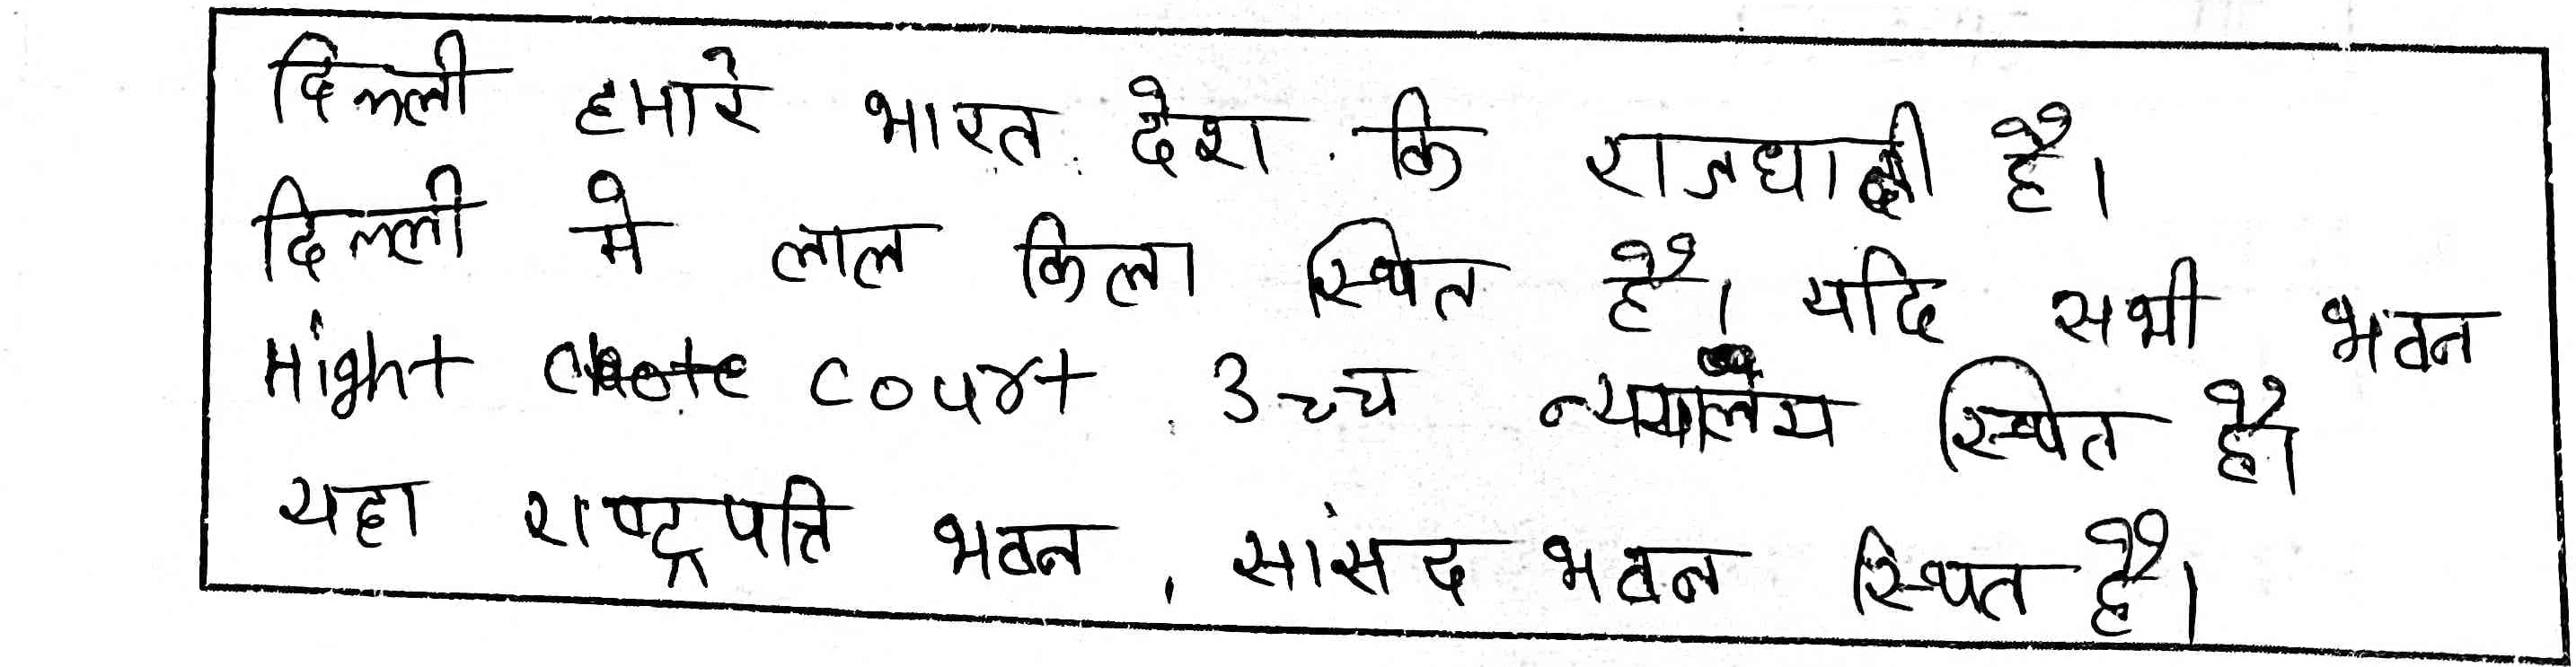 दिल्ली हमारे भारत देश कि राजधानी है।
दिल्ली मे लाल किला स्थित है। यदि सभी भवन
Hight court उच्च न्ययालय स्थित है।
यहा राष्ट्रपति भवन, सांसद भवन स्थित है।